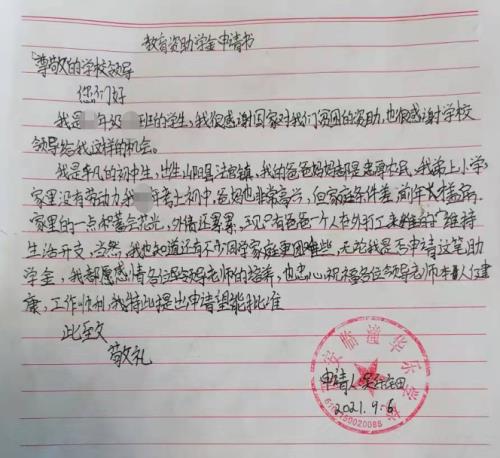 教育资助学金申请书
尊敬的学校领导
您们好
我是 年级 班的学生,我很感谢国家对我们贫困的资助,也很感谢学校
领导给我这样的机会。
我是平凡的初中生,出生 阳县法官镇,我的爸爸妈妈都是忠厚农民,我弟上小学
家里没有劳动力我 年考上初中,爸妈也非常高兴,但家庭条件差,前年 才盖房
家里的一点积蓄全花光,外债还累累,现只有爸爸一个人在外打工来维 维持
生活开支,当然,我也知道还有不少同学家庭更困难些,无论我是否申请这笔助
学金,我都愿感情各位 领导老师的培养,也忠心祝福各位领导老师 人健
康,工作顺利,我特此提出申请望能批准
此至
敬礼
安临潼华乐学校
申请人
2021.9.6
6101150020085